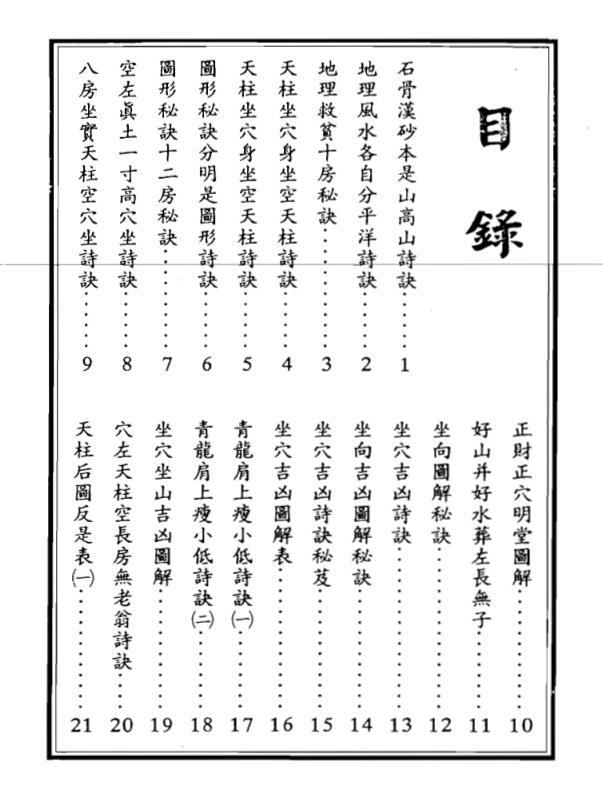 目錄
石骨漢砂本是山高山詩訣‥‥‥1
地理風水各自分平洋詩訣‥‥‥2
地理救貧十房秘訣‥‥‥‥‥‥3
天柱坐穴身坐空天柱詩訣‥‥‥4
天柱坐穴身坐空天柱詩訣‥‥‥5
圖形秘訣分明是圖形詩訣‥‥‥6
圖形秘訣十二房秘訣‥‥‥‥‥7
空左眞土一寸高穴坐詩訣‥‥‥8
八房坐實天柱空穴坐詩訣‥‥‥9
正財正穴明堂圖解‥‥‥‥‥‥10
好山并好水葬左長無子‥‥‥‥11
坐向圖解秘訣‥‥‥‥‥‥‥‥12
坐穴吉凶詩訣‥‥‥‥‥‥‥‥13
坐向吉凶圖解秘訣‥‥‥‥‥‥14
坐穴吉凶詩訣秘芨‥‥‥‥‥‥15
坐穴吉凶圖解表‥‥‥‥‥‥‥16
青龍肩上瘦小低詩訣㈠‥‥‥‥17
青龍肩上瘦小低詩訣㈡‥‥‥‥18
坐穴坐山吉凶圖解‥‥‥‥‥‥19
穴左天柱空長房無老翁詩訣‥‥20
天柱后圖反是表㈠‥‥‥‥‥‥21